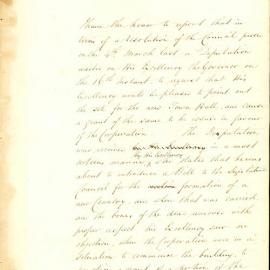 I have the honor to report that in
terms of a Resolution of the Council passed
on the 4th March last a Deputation
waited on His Excellency the Governor on
the 16th Instant to request that His
Excellency would be pleased to point out
the site for the new Town Hall, and cause
a grant of the same to be issued in favour
of the Corporation. The Deputation
was received in a most
by His Excellency
courteous manner, & he stated that he was
about to introduce a Bill to the Legislative
Council for the formation of a
new and when that was carried,
and the bones of the dead removed with
proper respect His Excellency saw no
objection, when the Corporation was in a
situation to commence the building, to
a grant of a portion of the